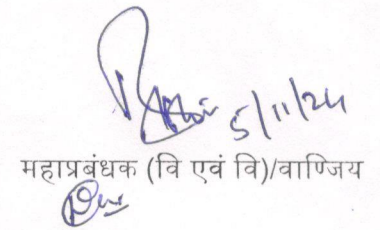 5/11/24
महाप्रबंधक (वि एवं वि)/वाण्जिय